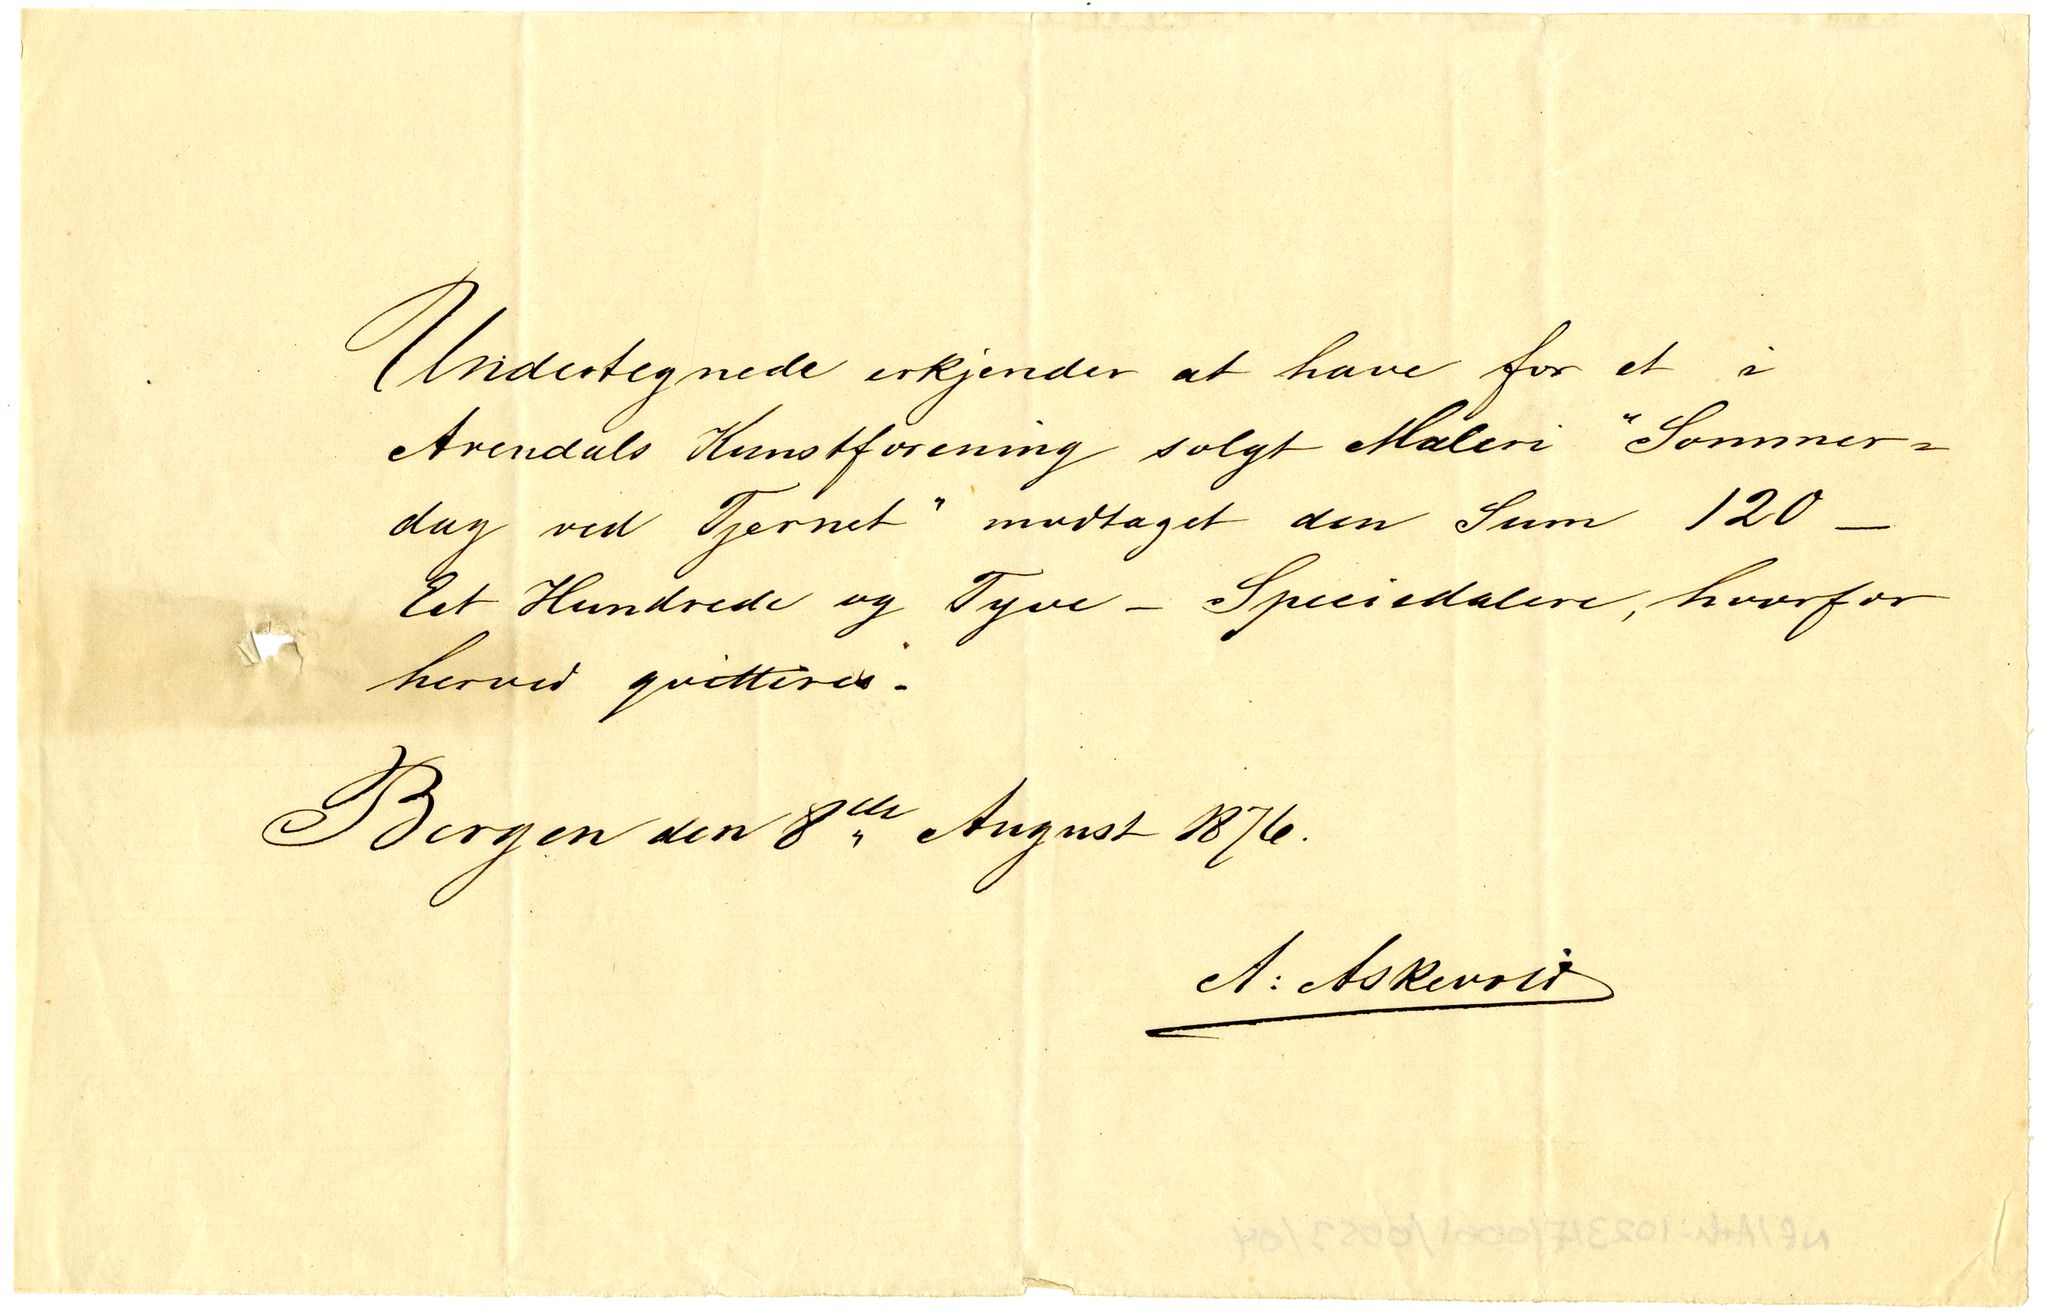 Undertegnede erkjender at have for et i
Arendals Kunstforening solgt Maleri "Sommer=
dag ved Tjernet" modtaget den Sum 120 —
Eet Hundrede og Tyve — Speciedalere, hvorfor
herved qvitteres.
Bergen den 8de August 1876.
A: Askevold